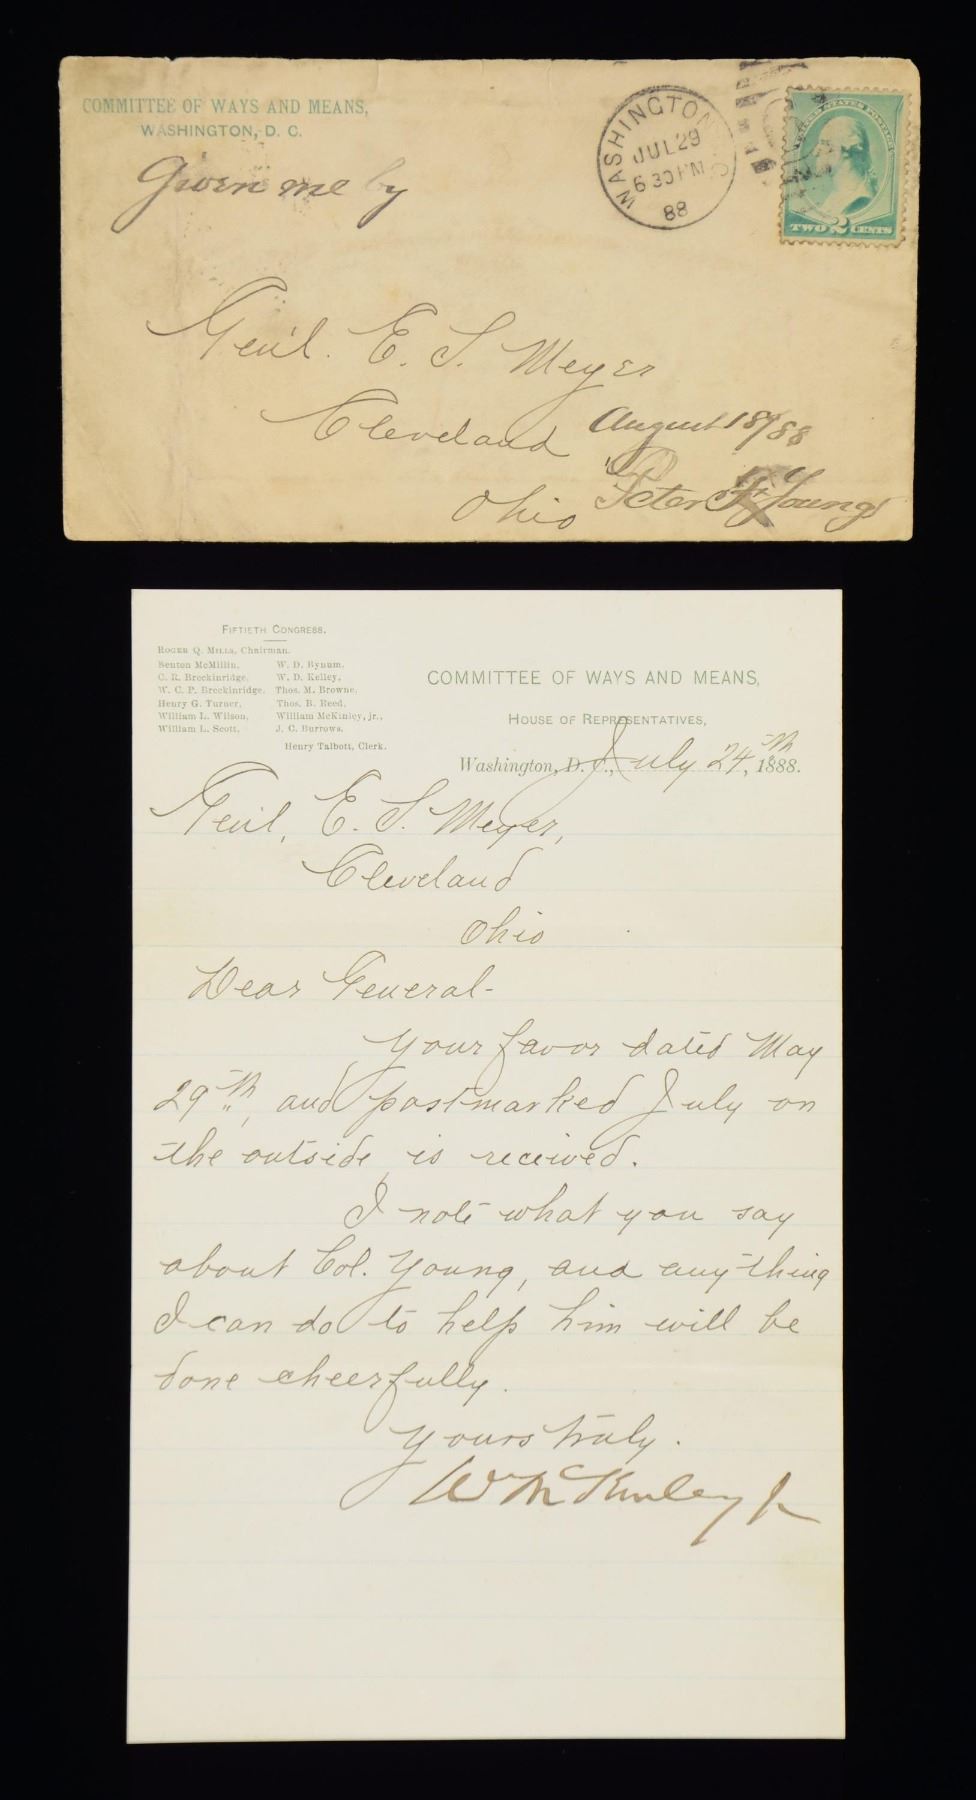 COMMITTEE OF WAYS AND MEANS,
WASHINGTON, D. C.
Given me by
WASHINGTON
JUL 29
6 30 PM
88
UNITED STATES POSTAGE
TWO 2 CENTS
Gen'l. E. S. Meyer
Cleveland
Ohio
August 18/88
Peter Young
FIFTIETH CONGRESS.
ROGER Q. MILLS, Chairman.
Benton McMillin,
C. R. Breckinridge,
W. C. P. Breckinridge,
Henry G. Turner,
William L. Wilson,
William L. Scott,
W. D. Bynum,
W. D. Kelley,
Thos. M. Browne,
Thos. B. Reed,
William McKinley, jr.,
J. C. Burrows.
Henry Talbott, Clerk.
COMMITTEE OF WAYS AND MEANS,
HOUSE OF REPRESENTATIVES,
Washington, D. C., July 24th, 1888.
Genl, E. S. Meyer,
Cleveland
Ohio
Dear General-
Your favor dated May
29th, and postmarked July on
the outside, is received.
I note what you say
about Col. Young, and anything
I can do to help him will be
done cheerfully.
Yours truly.
W McKinley Jr